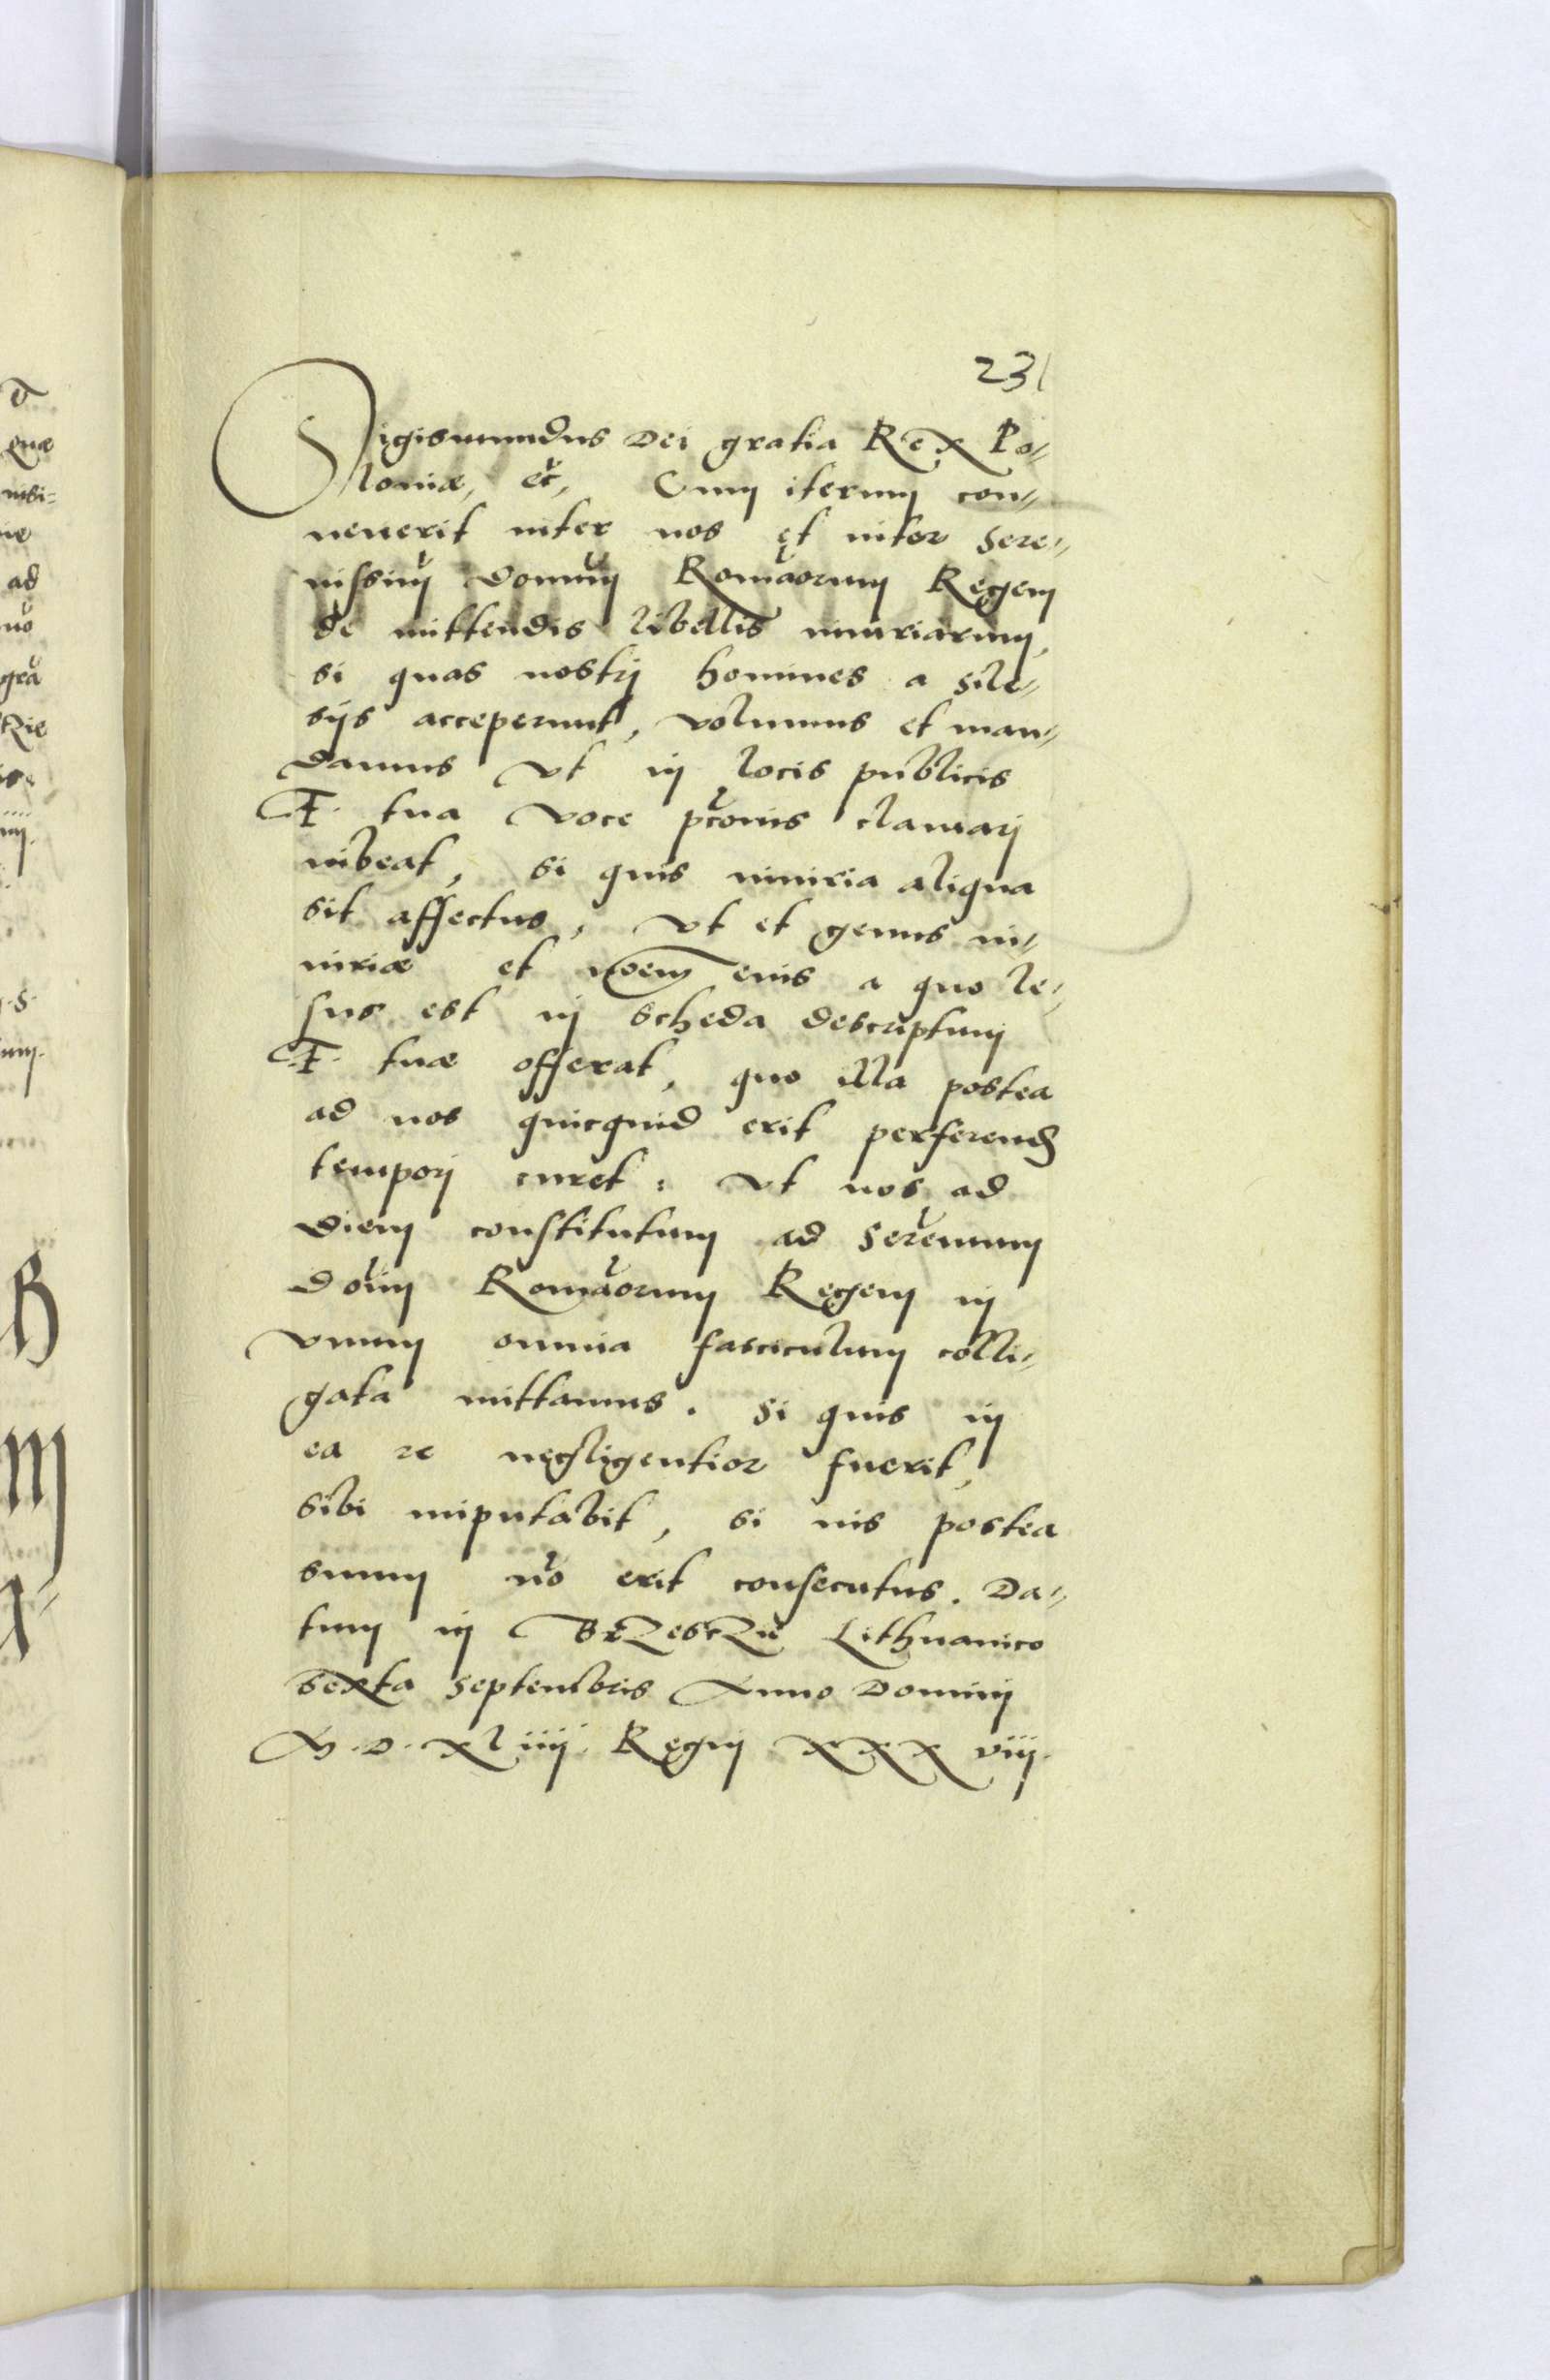 231
Sigismundus Dei gratia Rex Po-
loniæ, etc, Cum iterum con-
uenerit inter nos et inter Sere-
nissim Domin Romaorum Regem
de mittendis libellis iniuriarum,
si quas nostrj homines a Sile-
sijs acceperunt, volumus et man-
damus vt in locis publicis
F. tua voce pconis clamarj
iubeat, si quis iniuria aliqua
sit affectus, vt et genus in-
iuriæ et noem eius a quo le-
sus est in scheda descriptum
F. tuæ offerat, quo illa postea
ad nos quicquid erit perferend
temporj curet: vt nos ad
diem constitutum ad Serenum
Doim Romaorum Regem in
vnum omnia fasciculum colli-
gata mittamus. Si quis in
ea re negligentior fuerit,
sibi imputabit, si ius postea
suum no erit consecutus. Da-
tum in Brzesczie Lithuanico
sexta Septembris Anno Dominj
M. D. XLiiij. Regnj XXX viij.